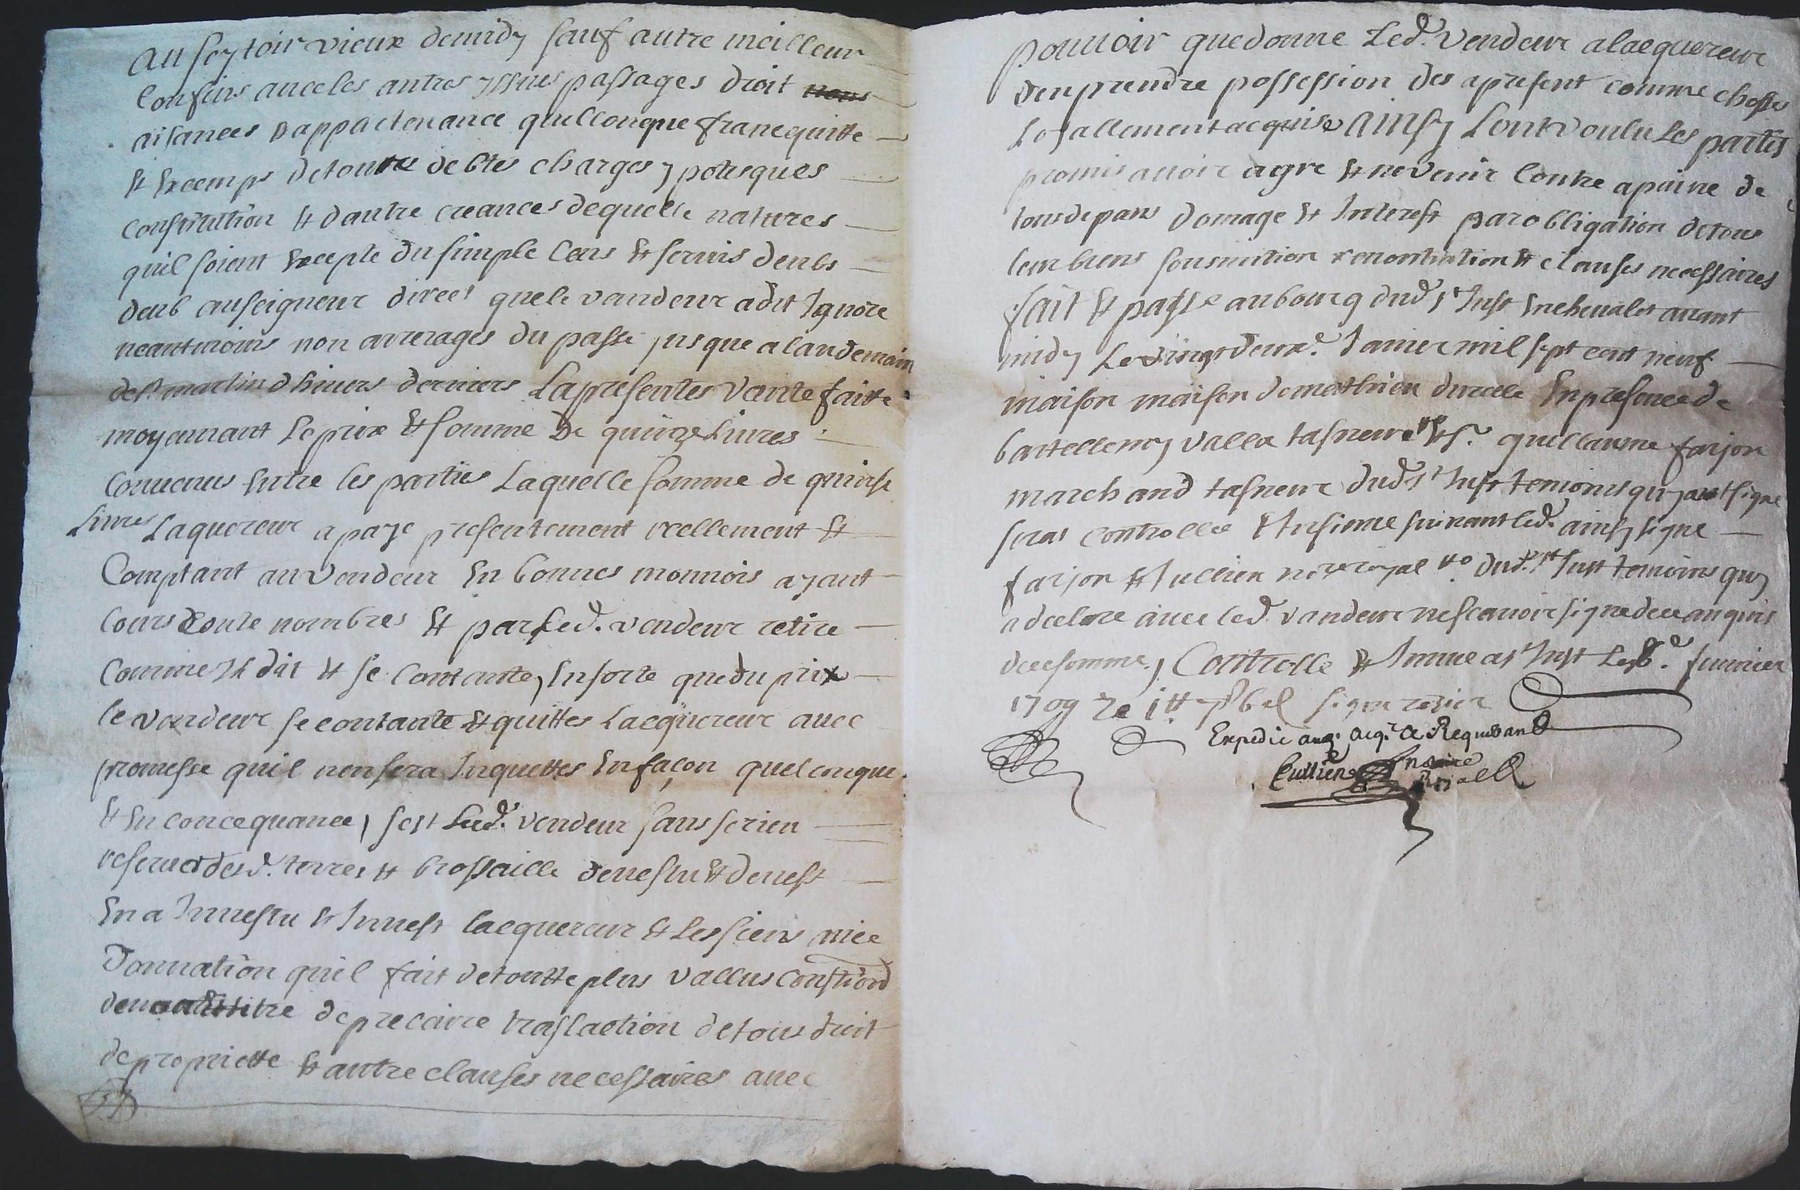 au seytoir vieux de midy sauf autre meilleur
confins avec les antres yssues passages droit nous
aisances & appactenance quelconque franc quitte
& Exemps de toutte debtes charges ypotesques
constitution & dautre creances de quelle natures
quil soient Excepte du simple Cens & servis deubs
deub au seigneur direct que le vandeur a dit Ignore
neantmoins non arrerages du passe jusque a landemain
de st martin dhivers derniers La presentes vante faitte
moyennant le prix & somme De quinze Livres
convenus Entre les parties Laquelle somme de quinse
Livres Laquereur a paye presentement reellement &
Comptant au vendeur En bonnes monnois ayant
cours conte nombres & par Led. vendeur retire
comme Il dit & se contante, En sorte que du prix
le vendeur se contante & quittes Lacquereur avec
promesse quil nen sera Inquettes En façon quelconque
& En concequance, sest Led. vendeur sans se rien
reserver desd. terres & brossaille devestu & devest
En a Investu & Invest Lacquereur & Les siens avec
Donnation quil fait de toutte plus vallus constiond
de precaire traslaction de tous droit
de propriette & autre clauses necessaires avec
pouvoir que donne Led. Vendeur a lacquereur
den prendre possession des apresent comme chosse
Loyallement acquise Ainsy Lont voulu Les parties
promis avoir agre & ne venir Contre a paine de
tous depans Domage & Interest par obligation de tous
leur biens sousmition renontiation & clauses necessaires
fait & passe au bourg dud. st Just En chevalet avant
midy Le vingt deux. Janvier mil sept cent neuf
maison maison de mathieu En presence de
bartellemy valla tasneur & sr. guillaume farjon
march and tasneur dud. st Just temoins qui ont signe
sera controlle & Insinue suivant led. ainsy signe
farjon & Jullien nore royal dud. st Just temoins qui
a declare avec led. vandeur ne scavoir signe de ce anquis
de ce somme, Controlle & a st Just Le fevrier
1709 signe
Expedie aud. acqr. Ce Requerant
Cullien notaire
Royall